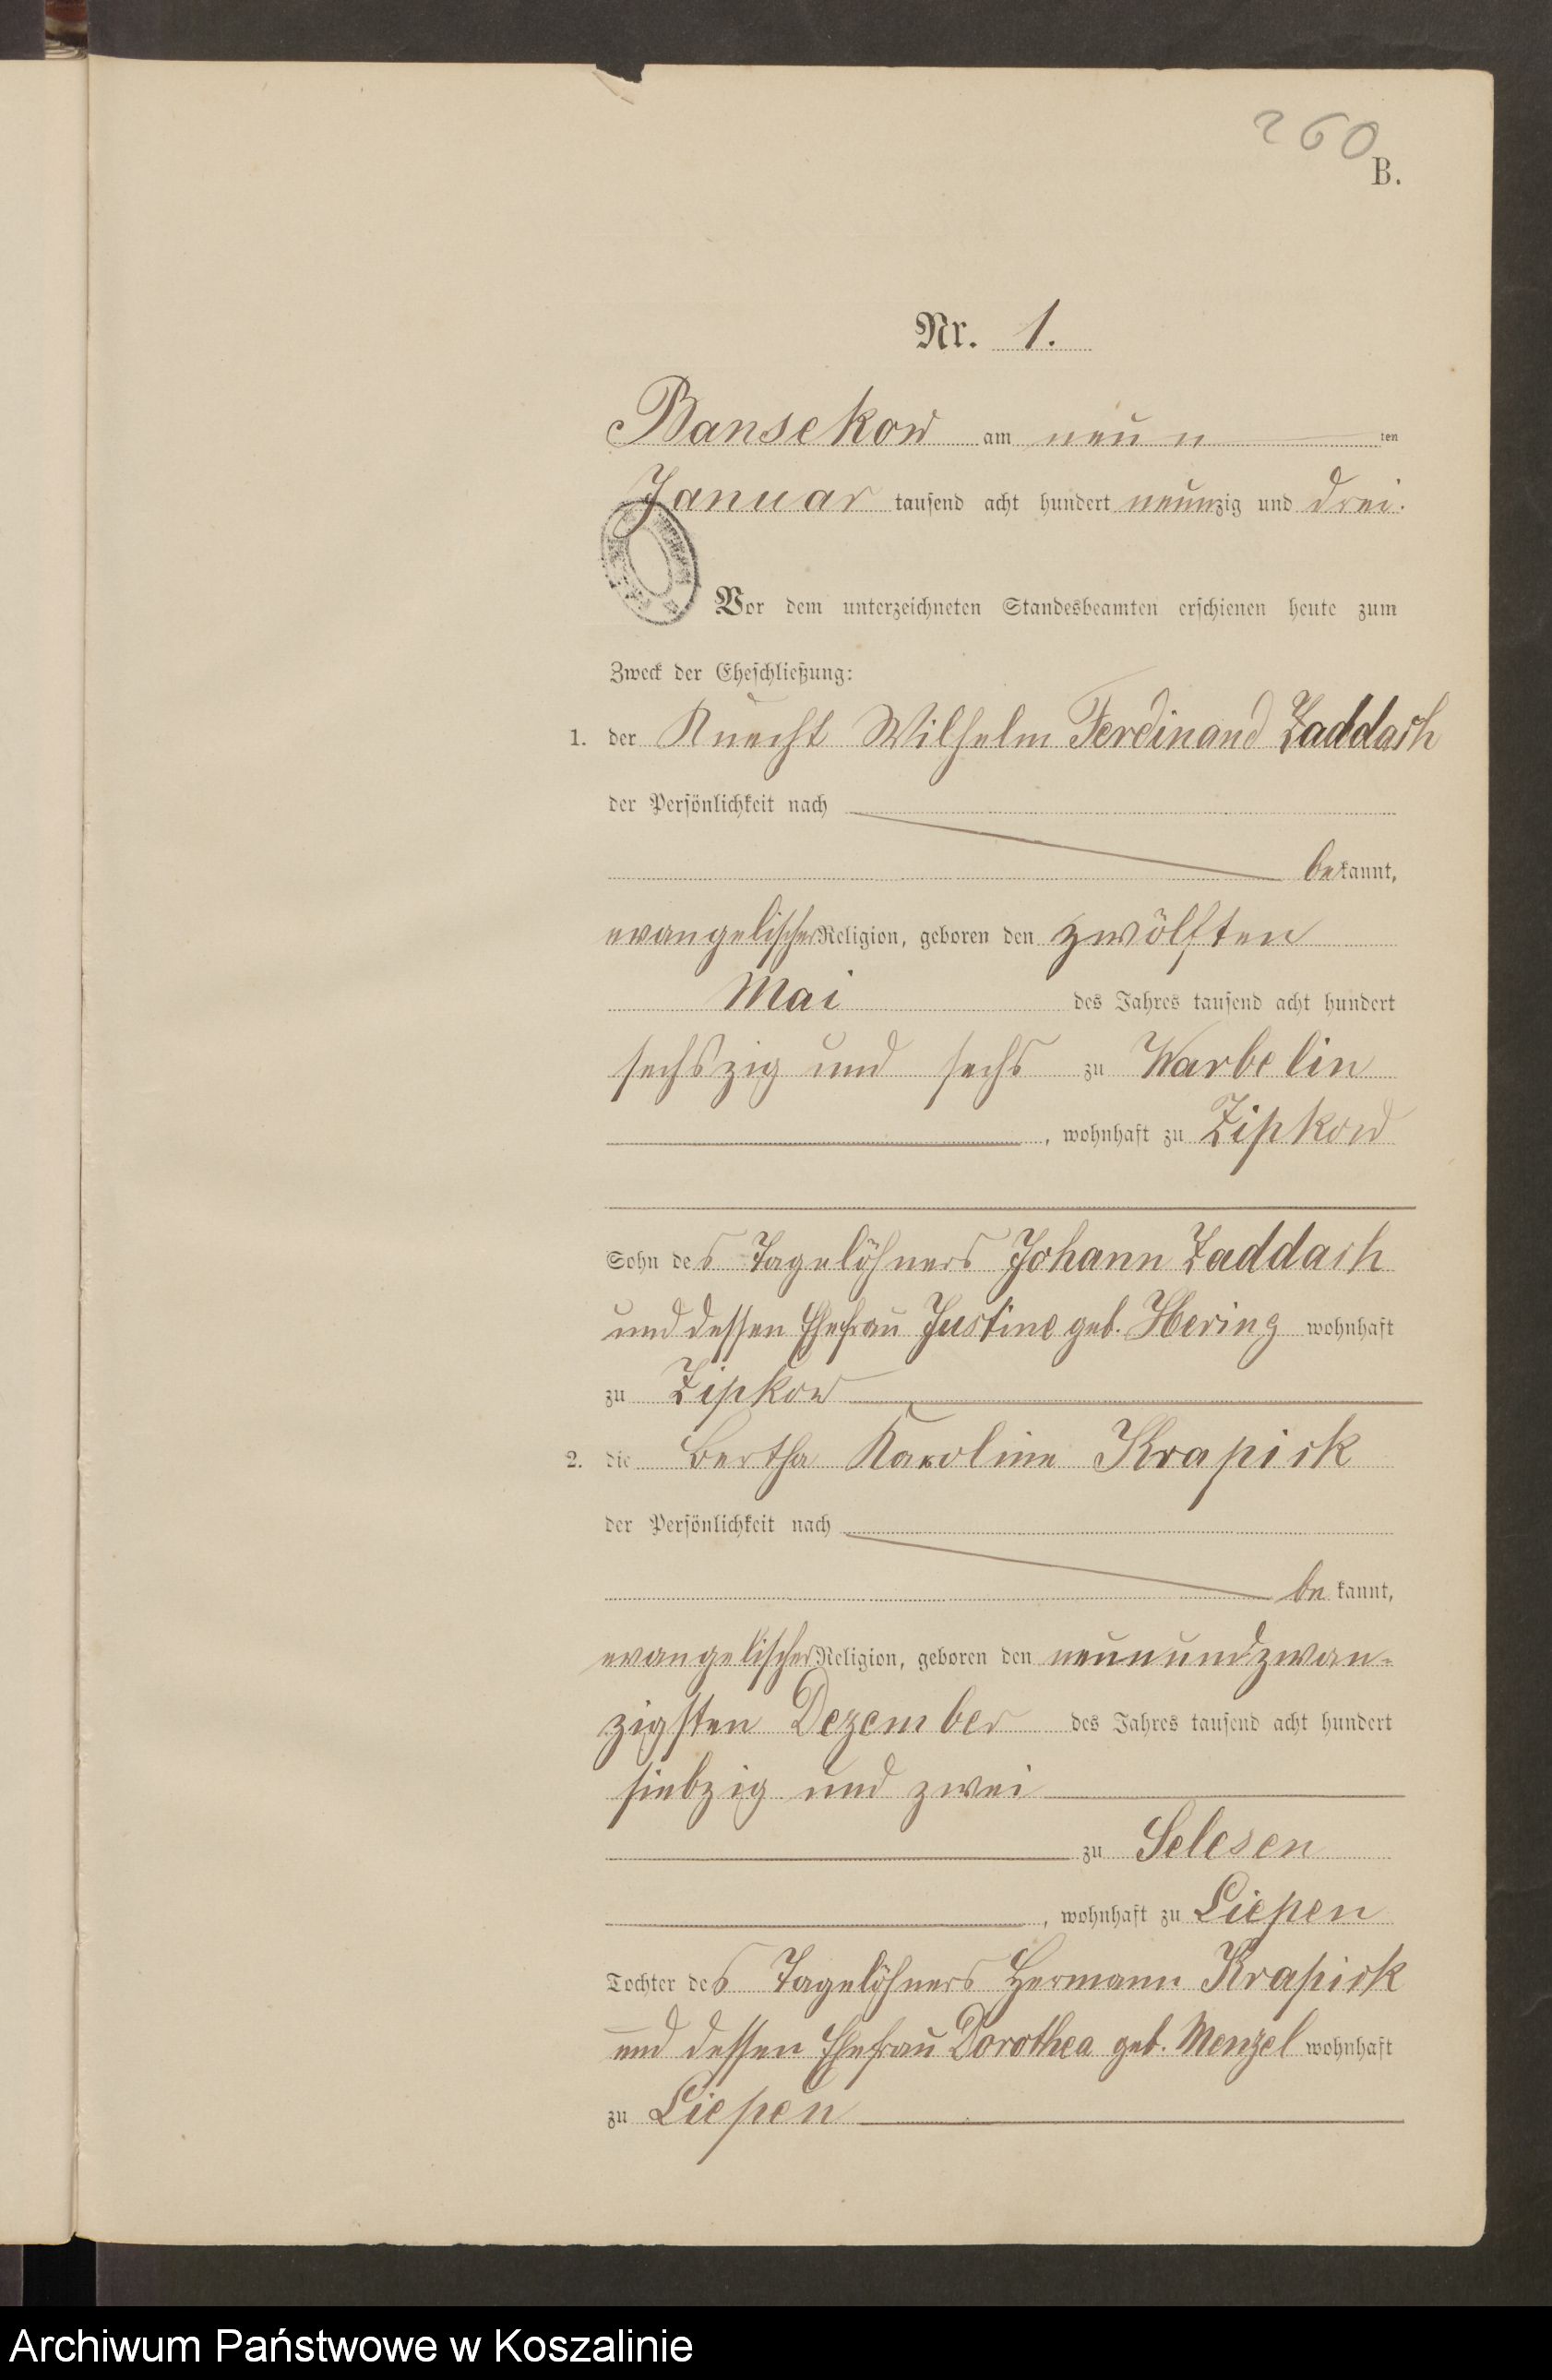 260
B.
Nr. 1.
Bansekow am neun ten
Januar tausend acht hundert neunzig und drei.
Vor dem unterzeichneten Standesbeamten erschienen heute zum
Zweck der Eheschließung:
1. der Knecht Wilhelm Ferdinand Zaddach
der Persönlichkeit nach
bekannt,
evangelischer Religion, geboren den zwölften
Mai des Jahres tausend acht hundert
sechszig und sechs zu Warbelin
, wohnhaft zu Zipkow
Sohn des Tagelöhners Johann Zaddach
und dessen Ehefrau Justine geb. Hering wohnhaft
zu Zipkow
2. die Bertha Karoline Krapick
der Persönlichkeit nach
bekannt,
evangelischer Religion, geboren den neunundzwan-
zigsten Dezember des Jahres tausend acht hundert
siebzig und zwei
zu Selesen
, wohnhaft zu Liepen
Tochter des Tagelöhners Hermann Krapick
und dessen Ehefrau Dorothea geb. Menzel wohnhaft
zu Liepen
Archiwum Państwowe w Koszalinie